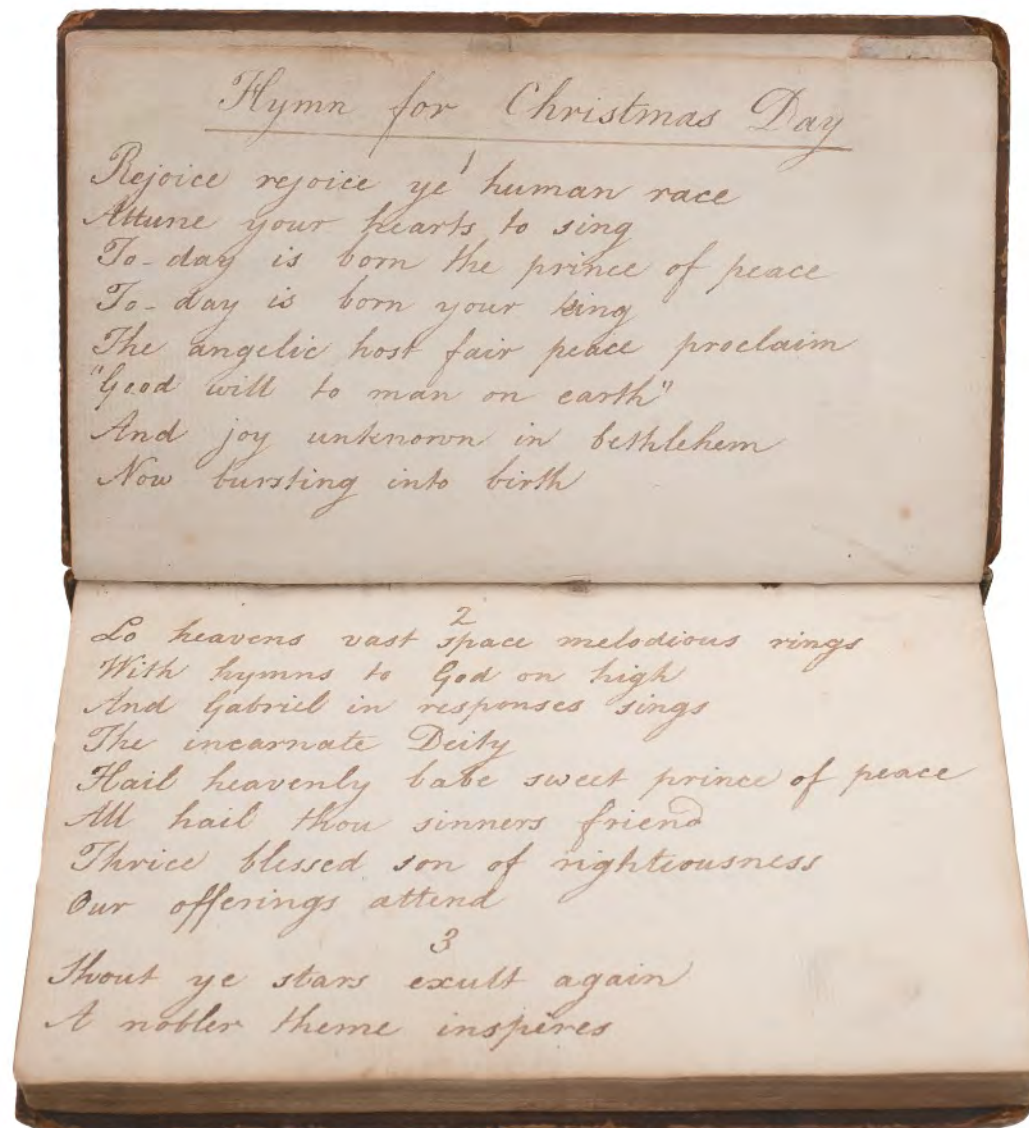 Hymn for Christmas Day
1
Rejoice rejoice ye human race
Attune your hearts to sing
To-day is born the prince of peace
To-day is born your king
The angelic host fair peace proclaim
"Good will to man on earth"
And joy unknown in bethlehem
Now bursting into birth
2
Lo heavens vast space melodious rings
With hymns to God on high
And Gabriel in responses sings
The incarnate Deity
Hail heavenly babe sweet prince of peace
All hail thou sinners friend
Thrice blessed son of righteousness
Our offerings attend
3
Shout ye stars exult again
A nobler theme inspires